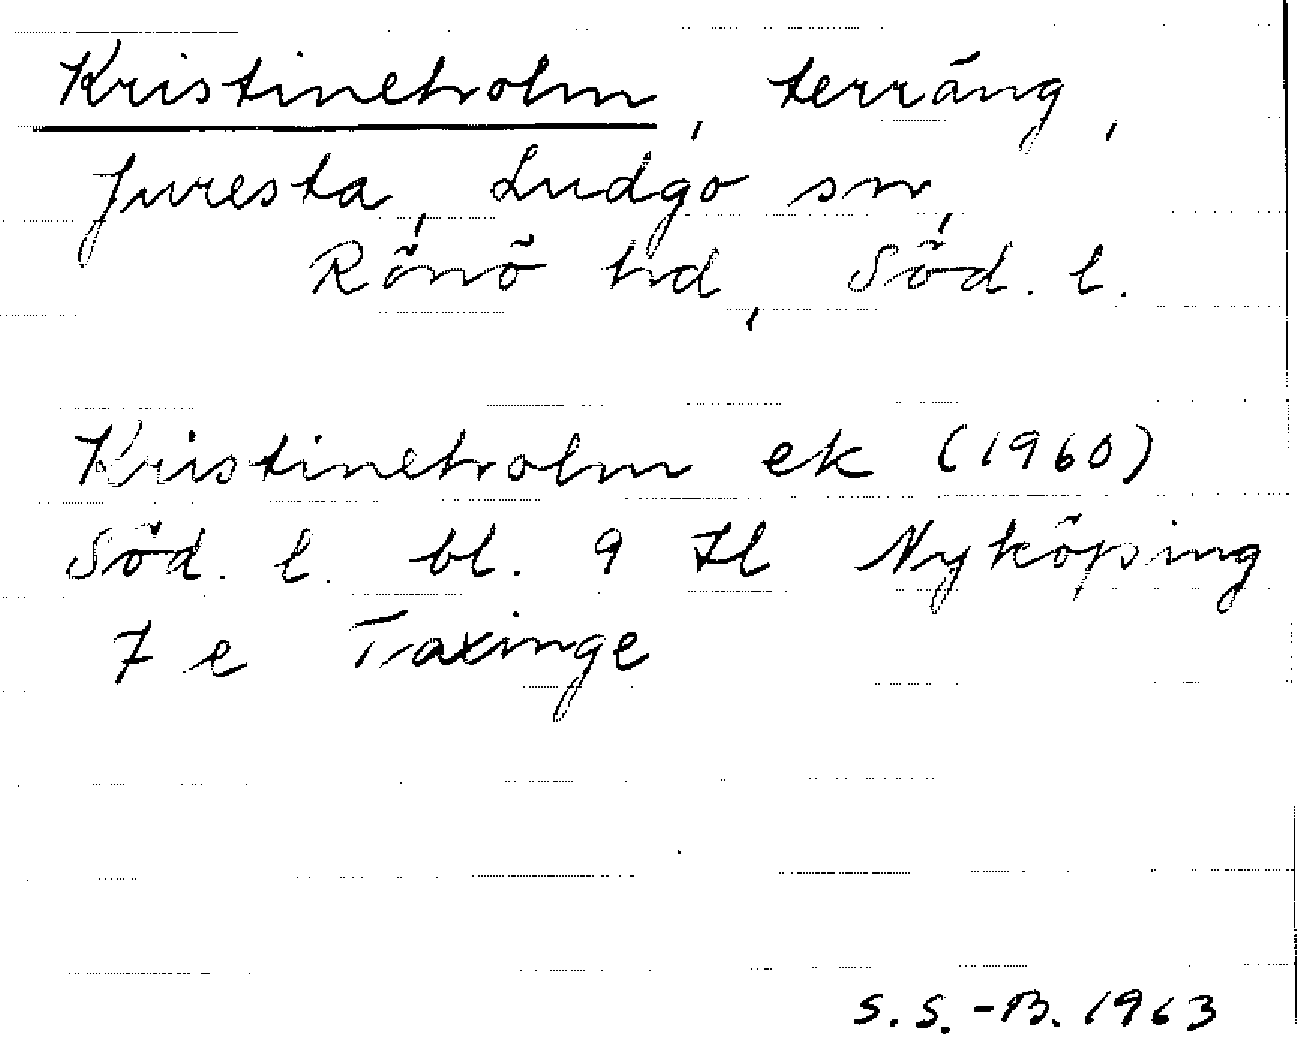 Kristineholm, terräng,
Juresta, Ludgo sn,
Rönö hd, Söd. l.
Kristineholm ek (1960)
Söd. l. bl. 9 H Nyköping
7 e Taxinge
S.S.-B. 1963